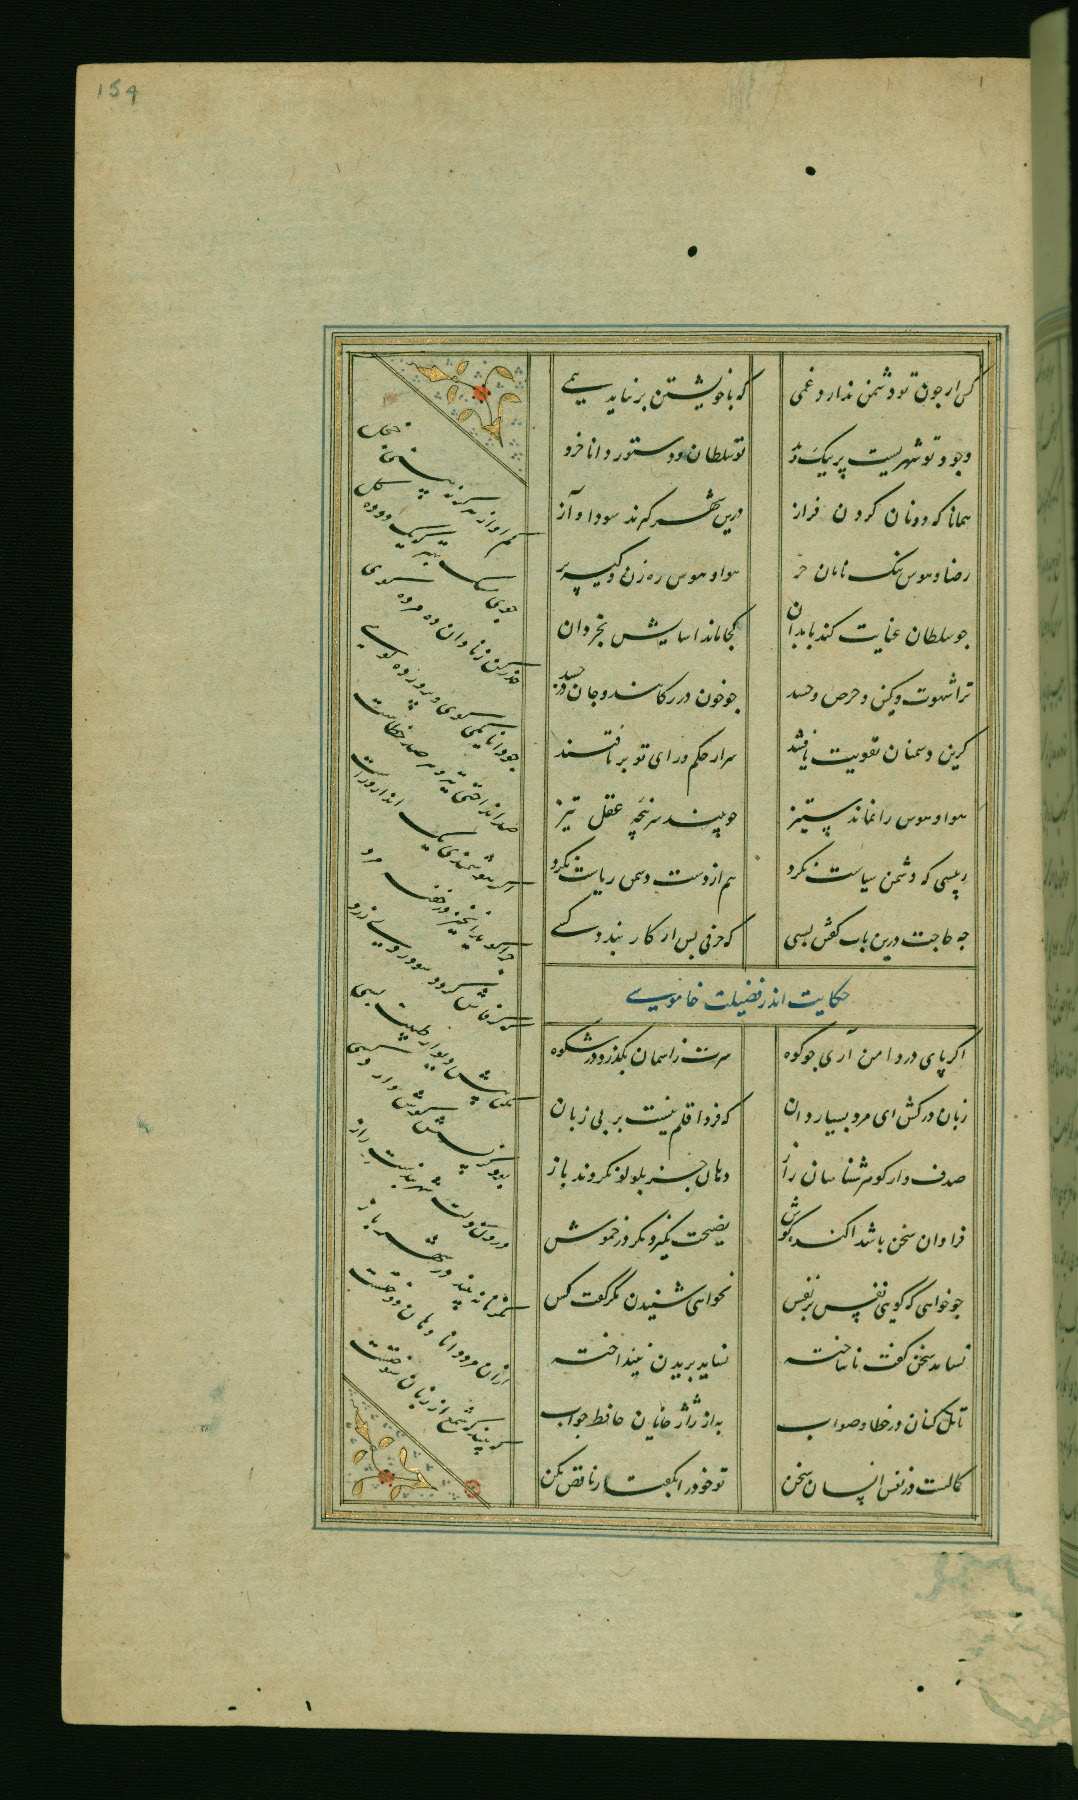 154
کس از چون تو دشمن ندارد غمی که با خویشتن برنیاید همی
وجود تو شهریست پر نیک و بد تو سلطان و دستور دانا خرد
همانا که دونان گردن فراز درین شهر کبرند سودا و آز
رضا و هوس ننگ نامان حر هوا و هوس ره زن و کیسه بر
چو سلطان عنایت کند با بدان کجا ماند اسایش بخردان
ترا شهوت و کین و حرص و حسد چو خون در رگانند و جان در جسد
گرین دسمنان تقویت یافتند سر از حکم و رای تو برتافتند
هوا و هوس را نماند ستیز چو بینند سرپنچه عقل تیز
رییسی که دشمن سیاست نکرد هم از دست دسمن ریاست نکرد
چه حاجت درین باب گفتن بسی که حرفی بس ار کار بندد کسی
حکایت اندر فضیلت خاموسی
اگر پای در دامن آری چو کوه سرت زاسمان بگذرد در شکوه
زبان درکش ای مرد بسیار دان که فردا قلم نیست بر بی زبان
صدف وار گوهر شناسان راز دهان جز بلولو نکردند باز
فراوان سخن باشد اکنده گوش نصیحت نگیرد مگر در خموش
چو خواهی که گویی نفس بر نفس نخواهی شنیدن مگر گفت کس
نساید سخن گفت ناساخته نساید بریدن نینداخته
تامل کنان در خطا و صواب به از ژاژ خایان حاظر جواب
کمالست در نفس انسان سخن تو خود را بگفتار ناقص مکن
کم اواز هرگز نه بینی خجل
جوی مشک بهتر که یک توده گل
حذر کن ز نادان ده مرده گوی
چو دانا یکی گوی و پرورده گوی
صد انداختی تیر و هر صد خطاست
اگر هوشمندی یک انداز و راست
چرا گوید ان چیز در خفیه مرد
که گر فاش گردد سود روی زرد
مکن پیش دیوار غیبت بسی
بود کز پسش گوش دارد کسی
درون دلت شهر بندست راز
نگر تا نه بیند در شهر باز
ازان مرد دانا دهان دوختست
که بیند که شمع از زبان سوختست